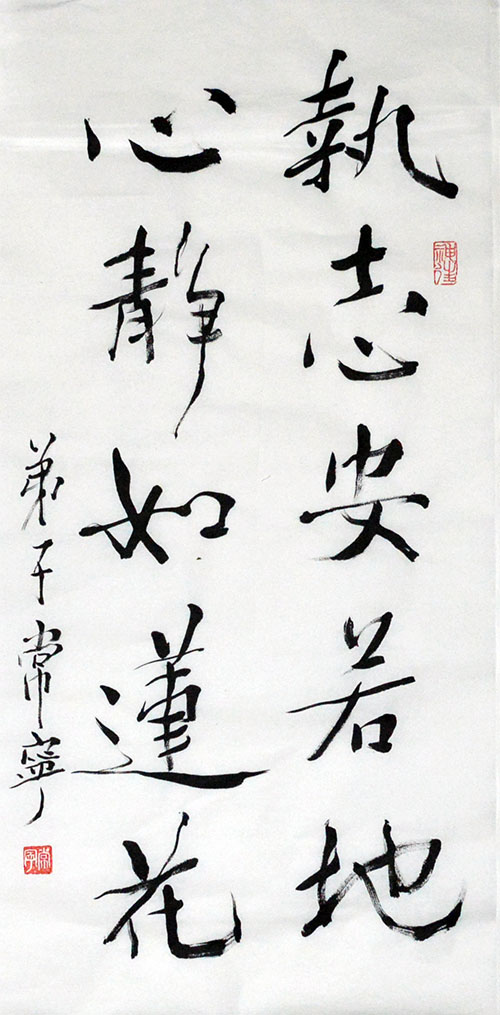 執志安若地
心静如蓮花
弟子常寧